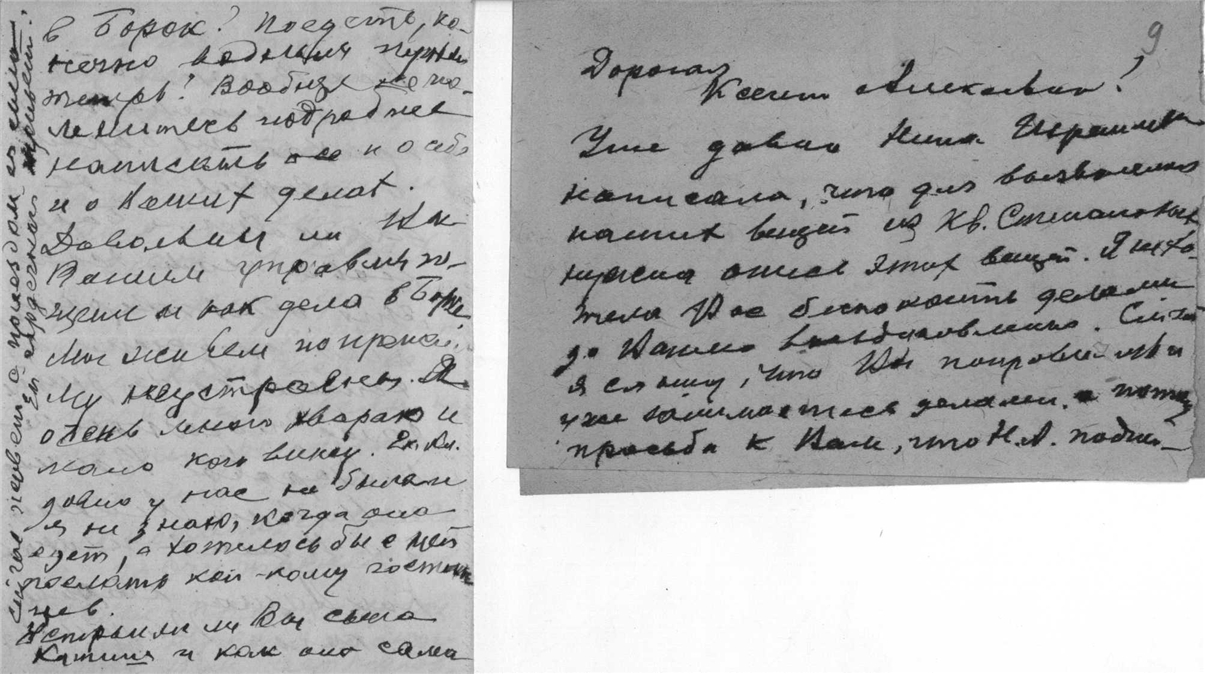 в Борок? Поедете, ко-
нечно водным
теперь? Вообще не по-
ленитесь подробнее
написать о себе
и о Ваших делах.
Довольны ли Вы
Вашим управляю-
щим и как дела в Борке
Мы живем по прежне-
му неустроены. Я
очень много хвораю и
мало кого вижу. Ек. Вл.
давно у нас не была и
я не знаю, когда она
едет, а хотелось бы с ней
послать кой-кому гостин-
цев.
Устроили ли Вы сына
Катиш и как она сама
сердечный привет.
9
Дорогая
Ксения!
Уже давно Нина
написала, что для
наших вещей из кв.
нужна опись этих вещей. Я не хо-
тела Вас беспокоить делами
до Вашего выздоровления. Сейчас
я слышу, что Вы поправились и
уже занимаетесь делами, а потому
просьба к Вам, что Н.А.